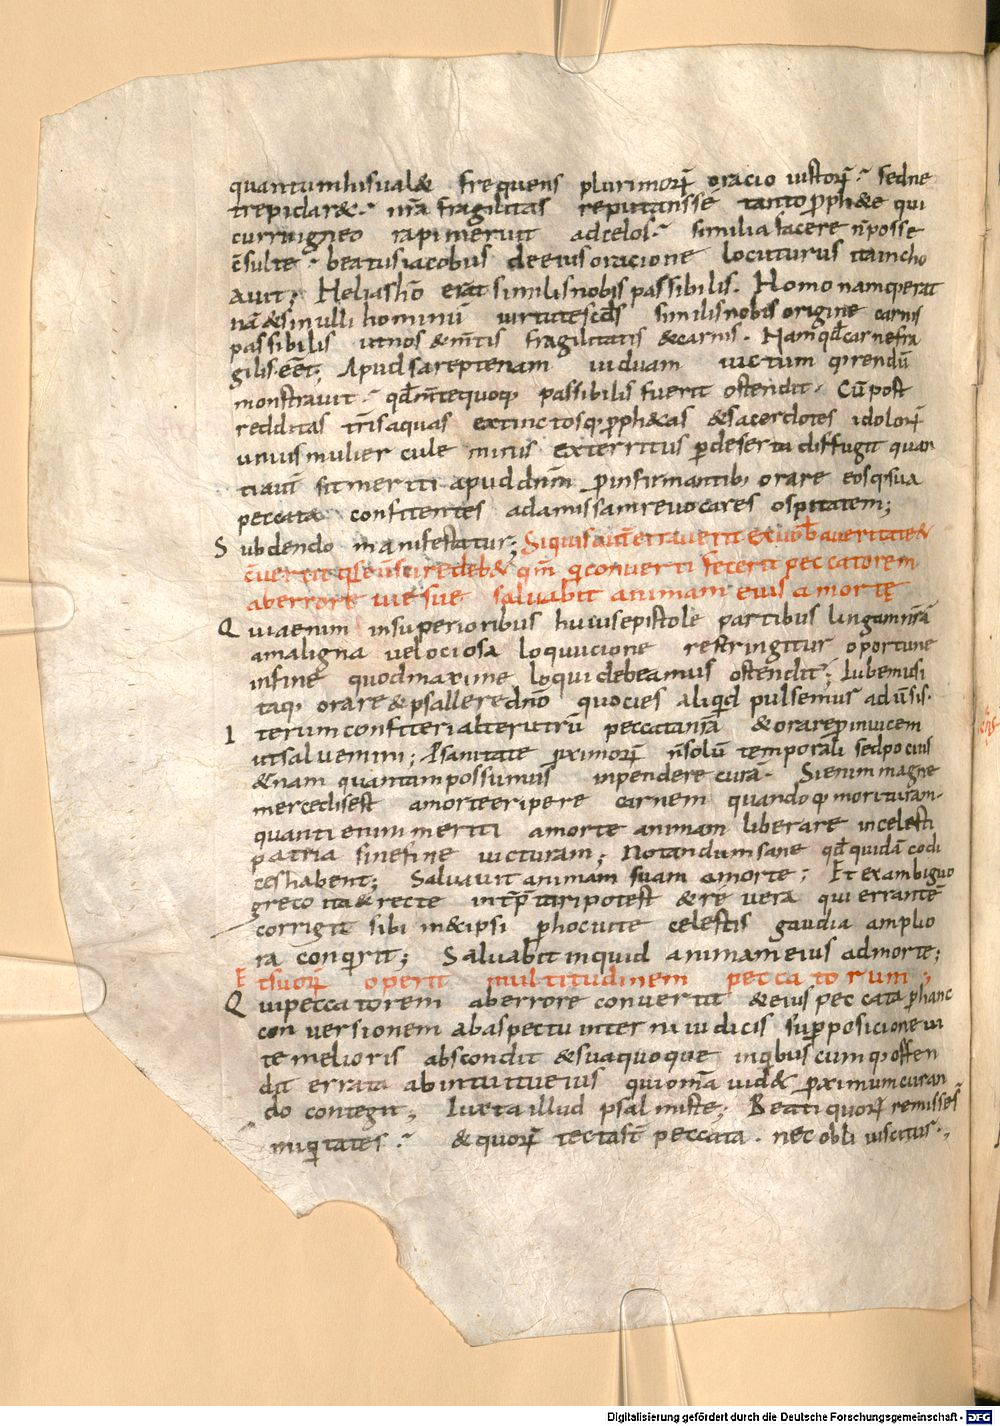 quantumhisual& frequens plurimorū oracio iustorū. sedne
trepidar&. nr̄a fragilitas reputansse tanto ꝓph&e qui
curruigneo rapimeruit adcelos. similia facere n̄ posse
c̄sulte. beatusiacobus deeiusoracione locuturus itaincho
auit; Heliash̄o erat similisnobis passibilis. Homo namq; erat
nā & sinulli hominū virtutescd̄s similisnobis origine carnis
passibilis utnos & m̄tis fragilitatis & carnis. Nam qd̄ carne fra
gilis eēt; Apudsareptenam viduam victum q̄rendū
monstrauit. qd̄ m̄tequoq; passibilis fuerit ostendit. Cū post
redditas tr̄isaquas extinctosq; ꝓph&as & sacerdotes idolorū
unius mulier cule minis exterritus ꝑdeserta diffugit quan
tiaut̄ sit meriti apud dn̄m ꝓinfirmantib; orare eosq; sua
peccata confitentes adamissamreuocares ospitatem;
Subdendo manifestatur; Siquis aut̄ errauerit exuob̄ aueritate &
c̄uertit q̄s eū scire deb& qm̄ q̄ conuerti fecerit peccatorem
aberrore vie sue saluabit animam eius a mortę
Quiaenim insuperioribus huiusepistole partibus linguamnr̄ā
amaligna velociosa loquucione restringitur oportune
infine quodmaxime loqui debeamus ostendit; Iubemusi
taq; orare & psallere dn̄o quocies aliquid pulsemus aduersis.
Iterum confiteri alterutrū peccatanr̄ā & orareꝓinuicem
utsaluemini; Psanitate ꝓximorū n̄solū temporali sedpocius
&nam quantampossumus inpendere curā. Sienim magne
mercedisest amorteeripere carnem quandoq; morituram.
quanti enim meriti amorte animam liberare incelesti
patria sinefine uicturam; Notandumsane qd̄ quidā codi
ceshabent; Saluauit animam suam amorte; Et exambiguo
greco ita & recte intp̄taripotest & re vera qui errantē
corrigit sibi in&ipsi ꝑhocuite celestis gaudia amplio
ra conq̄rit; Saluabit inquid animam eius admorte;
Etsuorū operit multitudinem peccatorum;
Quipeccatorem aberrore conuertit & eius peccata ꝑhanc
conuersionem abaspectu interni iudicis suꝑposicione ui
te melioris abscondit & suaquoque inq̄bus cumq; offen
dit errata abintuitueius qui omā uid& ꝓximumcuran
do contegit; Iuxta illud psalmiste; Beati quorū remisses̄
iniq̄tates. & quorū tectas̄t peccata. nec obliuiscitur.